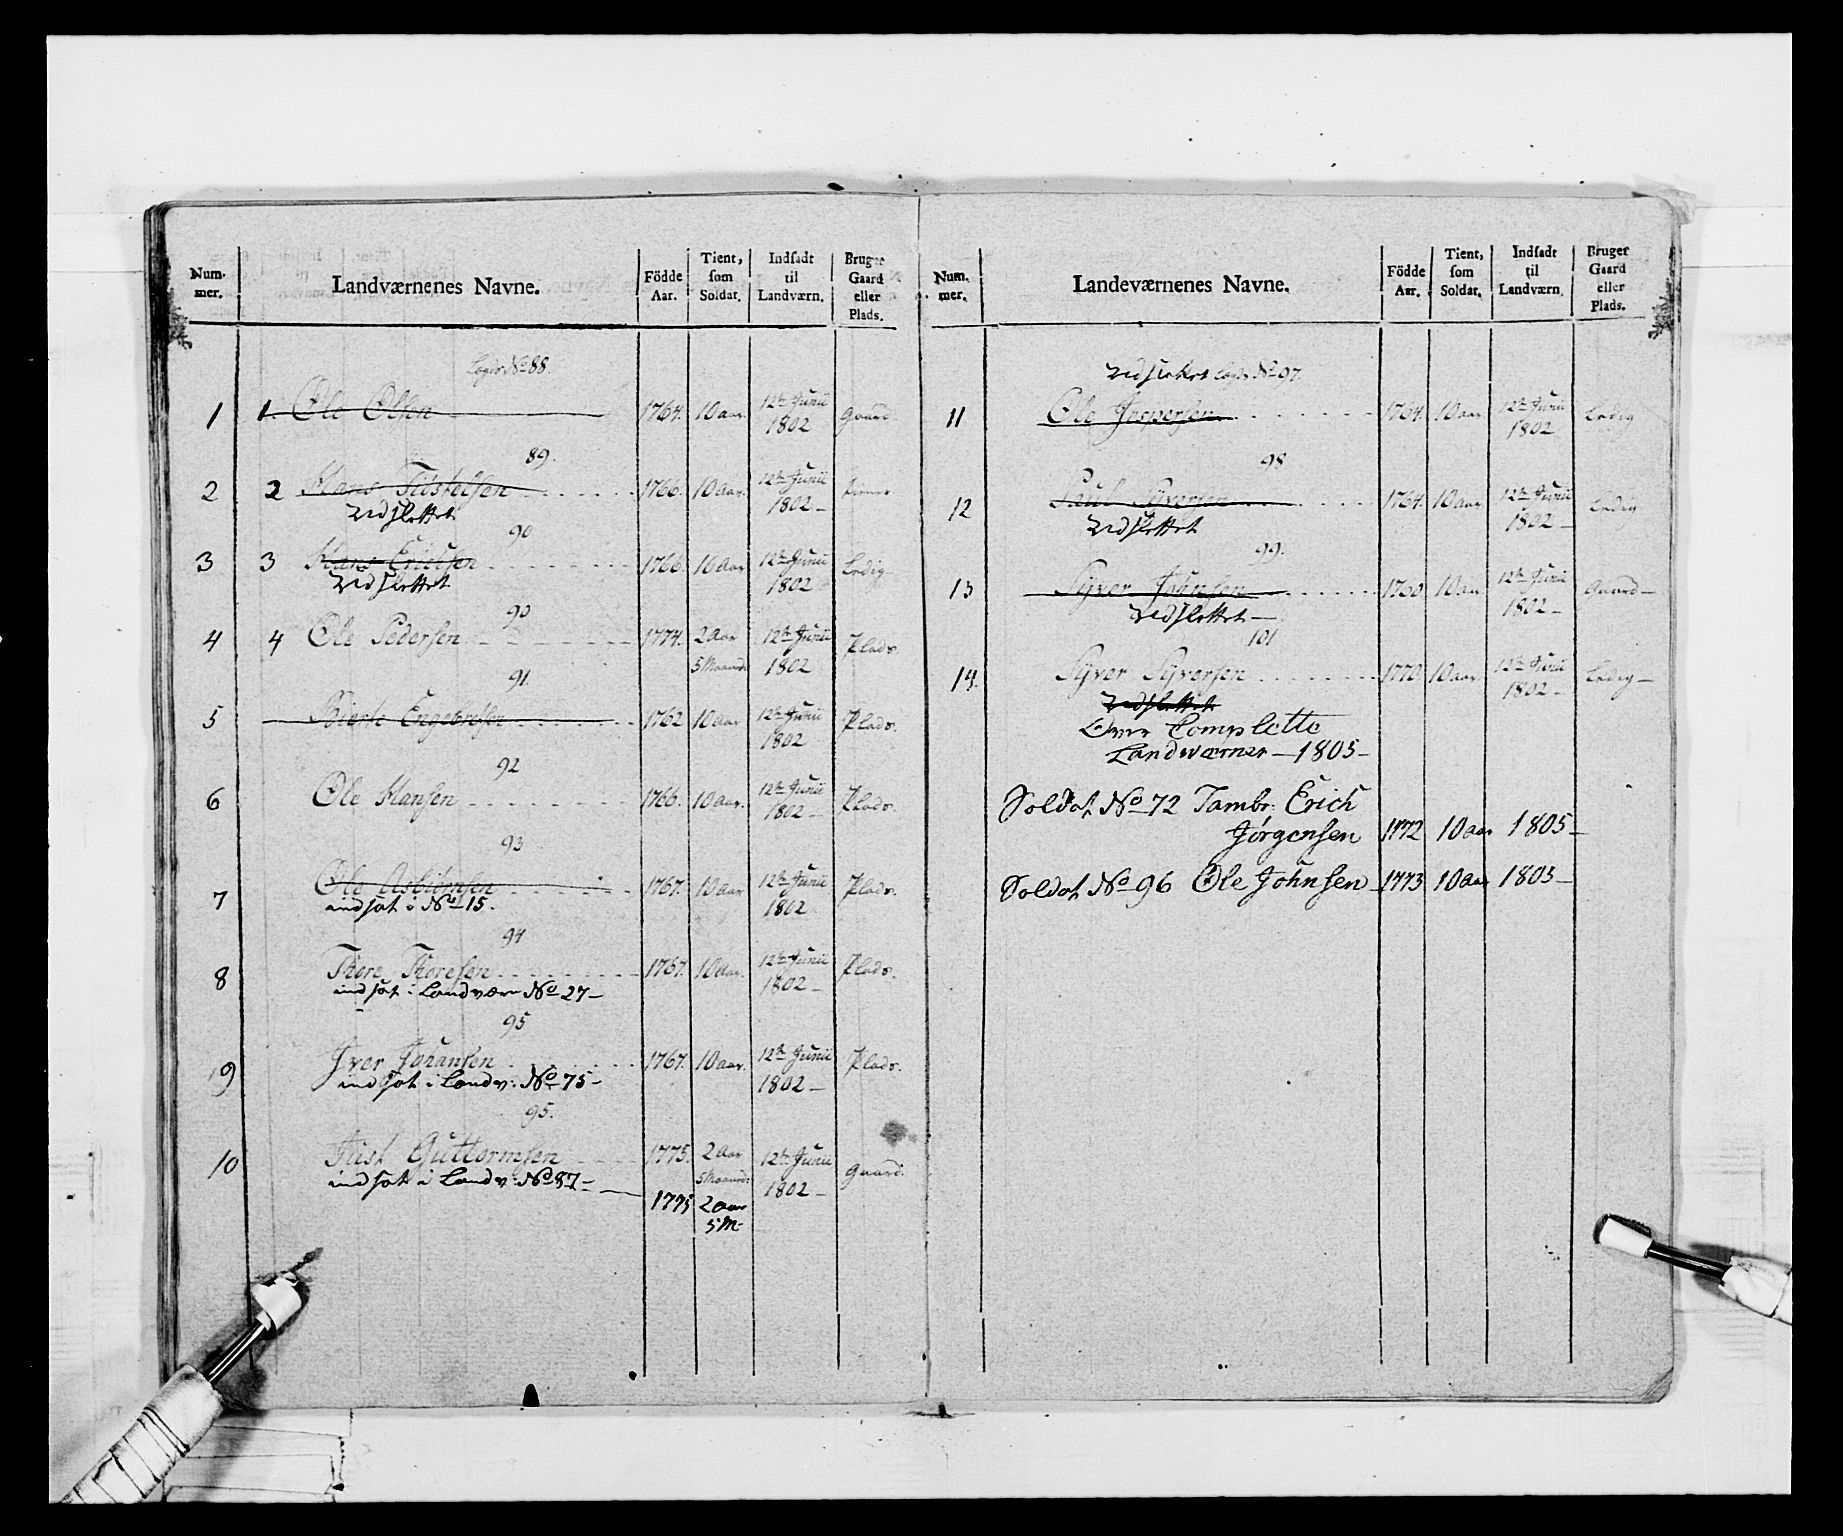 Num-
mer.
Landværnenes Navne.
Födde
Aar.
Tient,
som
Soldat.
Indsadt
til
Landværn.
Bruger
Gaard
eller
Plads.
No 88.
1 1. Ole Olsen 1764. 10 aar. 12te Junii 1802 Gaard
89.
2 2 Hans 1766. 10 aar. 12te Junii 1802 -
Udslettet
90
3 3 Hans Erichsen 1766. 10 aar 12te Junii 1802 Ledig
Udslettet
90
4 4 Ole Pedersen 1774. 2 aar 5 Maaned: 12te Junii 1802 Plads.
91.
5 Engebretsen 1762 10 aar 12te Junii 1802 Plads.
92
6 Ole Hansen 1766. 10 aar. 12te Junii 1802 - Plads.
93
7 Ole Asbiönsen 1767. 10 aar 12te Junii 1802 Plads.
indsat i No 15.
94
8 Thore Thoresen 1767. 10 aar. 12te Junii 1802 - Plads.
indsat i Landværn No 27 -
95
9 Iver Johansen 1767. 10 aar. 12te Junii 1802 - Plads.
indsat i Landv: No 75 -
95.
10 Just Guttormsen 1775. 2 aar 5 Maaned: 12te Junii 1802 - Gaard.
indsat i Landv: No 87 - 1775 2 aar
5 M.
Num-
mer.
Landeværnenes Navne.
Födde
Aar.
Tient,
som
Soldat.
Indsadt
til
Landværn.
Bruger
Gaard
eller
Plads.
Udslettet No 97.
11 Ole Jespersen 1764. 10 aar 12te Junii 1802 Ledig
98
12 Paul Syversen 1764. 10 aar 12te Junii 1802 - Ledig
Udslettet
99.
13 Syver Johnsen 1760 10 aar 12te Junii 1802 - Gaard -
Udslettet -
101
14. Syver Syversen 1770 10 aar 12te Junii 1802 - Ledig -
Udslettet
Over Complette
Landværner - 1805 -
Soldat No 72 Tambr: Erich
Jørgensen 1772 10 aar 1805 -
Soldat No 96 Ole Johnsen 1773 10 aar 1805 -